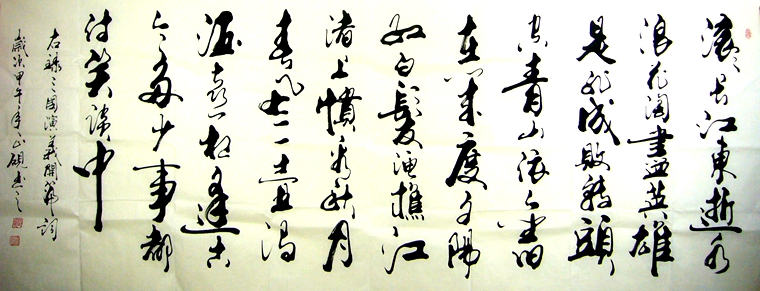 滚滚长江東逝水
浪花淘盡英雄
是非成敗转頭
空青山依舊
在几度夕陽
红白髮渔樵江
渚上慣看秋月
春风一壶浊
酒喜相逢古
今多少事都
付笑谈中
右録三国演義開篇詞
歲次甲午年 硯書之